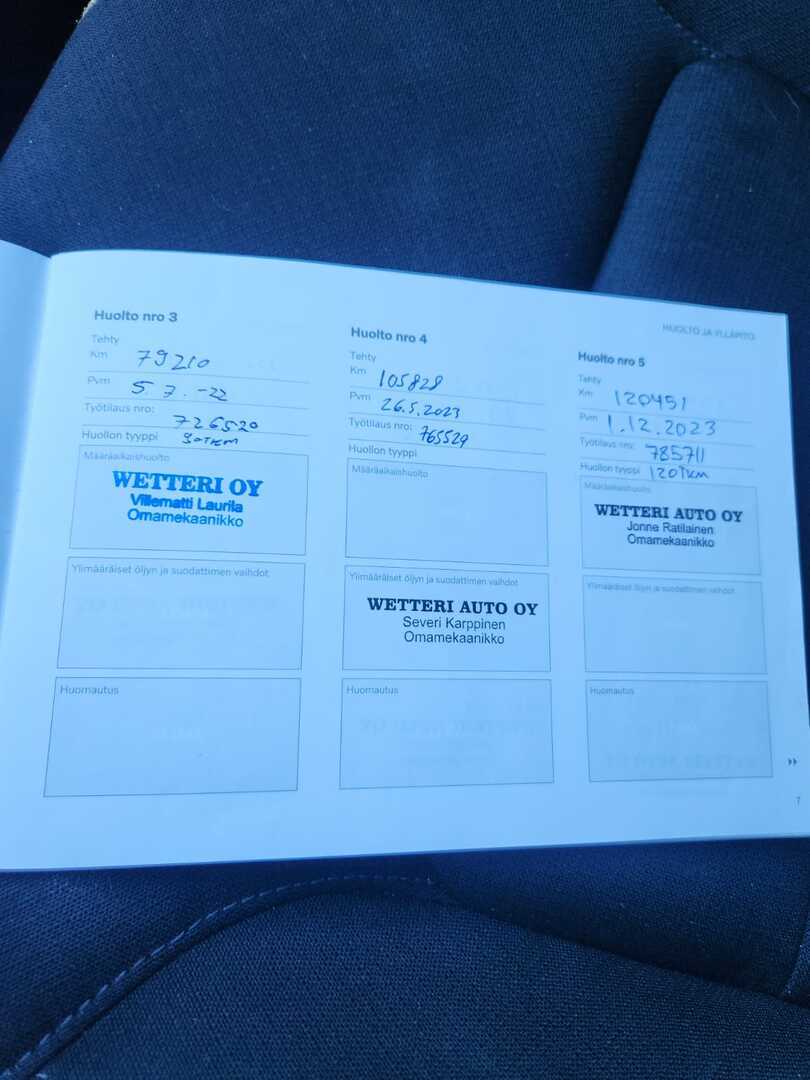 HUOLTO JA YLLÄPITO
Huolto nro 3
Tehty
Km 79210
Pvm 5.7.-22
Työtilaus nro: 726520
Huollon tyyppi 90TKM
Määräaikaishuolto
WETTERI OY
Villematti Laurila
Omamekaanikko
Ylimääräiset öljyn ja suodattimen vaihdot
Huomautus
Huolto nro 4
Tehty
Km 105828
Pvm 26.5.2023
Työtilaus nro: 765529
Huollon tyyppi
Määräaikaishuolto
Ylimääräiset öljyn ja suodattimen vaihdot
WETTERI AUTO OY
Severi Karppinen
Omamekaanikko
Huomautus
Huolto nro 5
Tehty
Km 120451
Pvm 1.12.2023
Työtilaus nro: 785711
Huollon tyyppi 120TKM
Määräaikaishuolto
WETTERI AUTO OY
Jonne Ratilainen
Omamekaanikko
Ylimääräiset öljyn ja suodattimen vaihdot
Huomautus
7